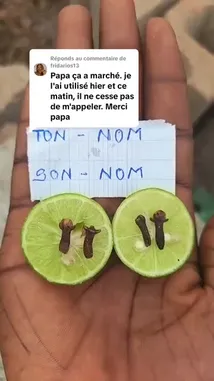 Réponds au commentaire de
fridarios13
Papa ça a marché. je
l'ai utilisé hier et ce
matin, il ne cesse pas
de m'appeler. Merci
papa
TON - NOM
SON - NOM